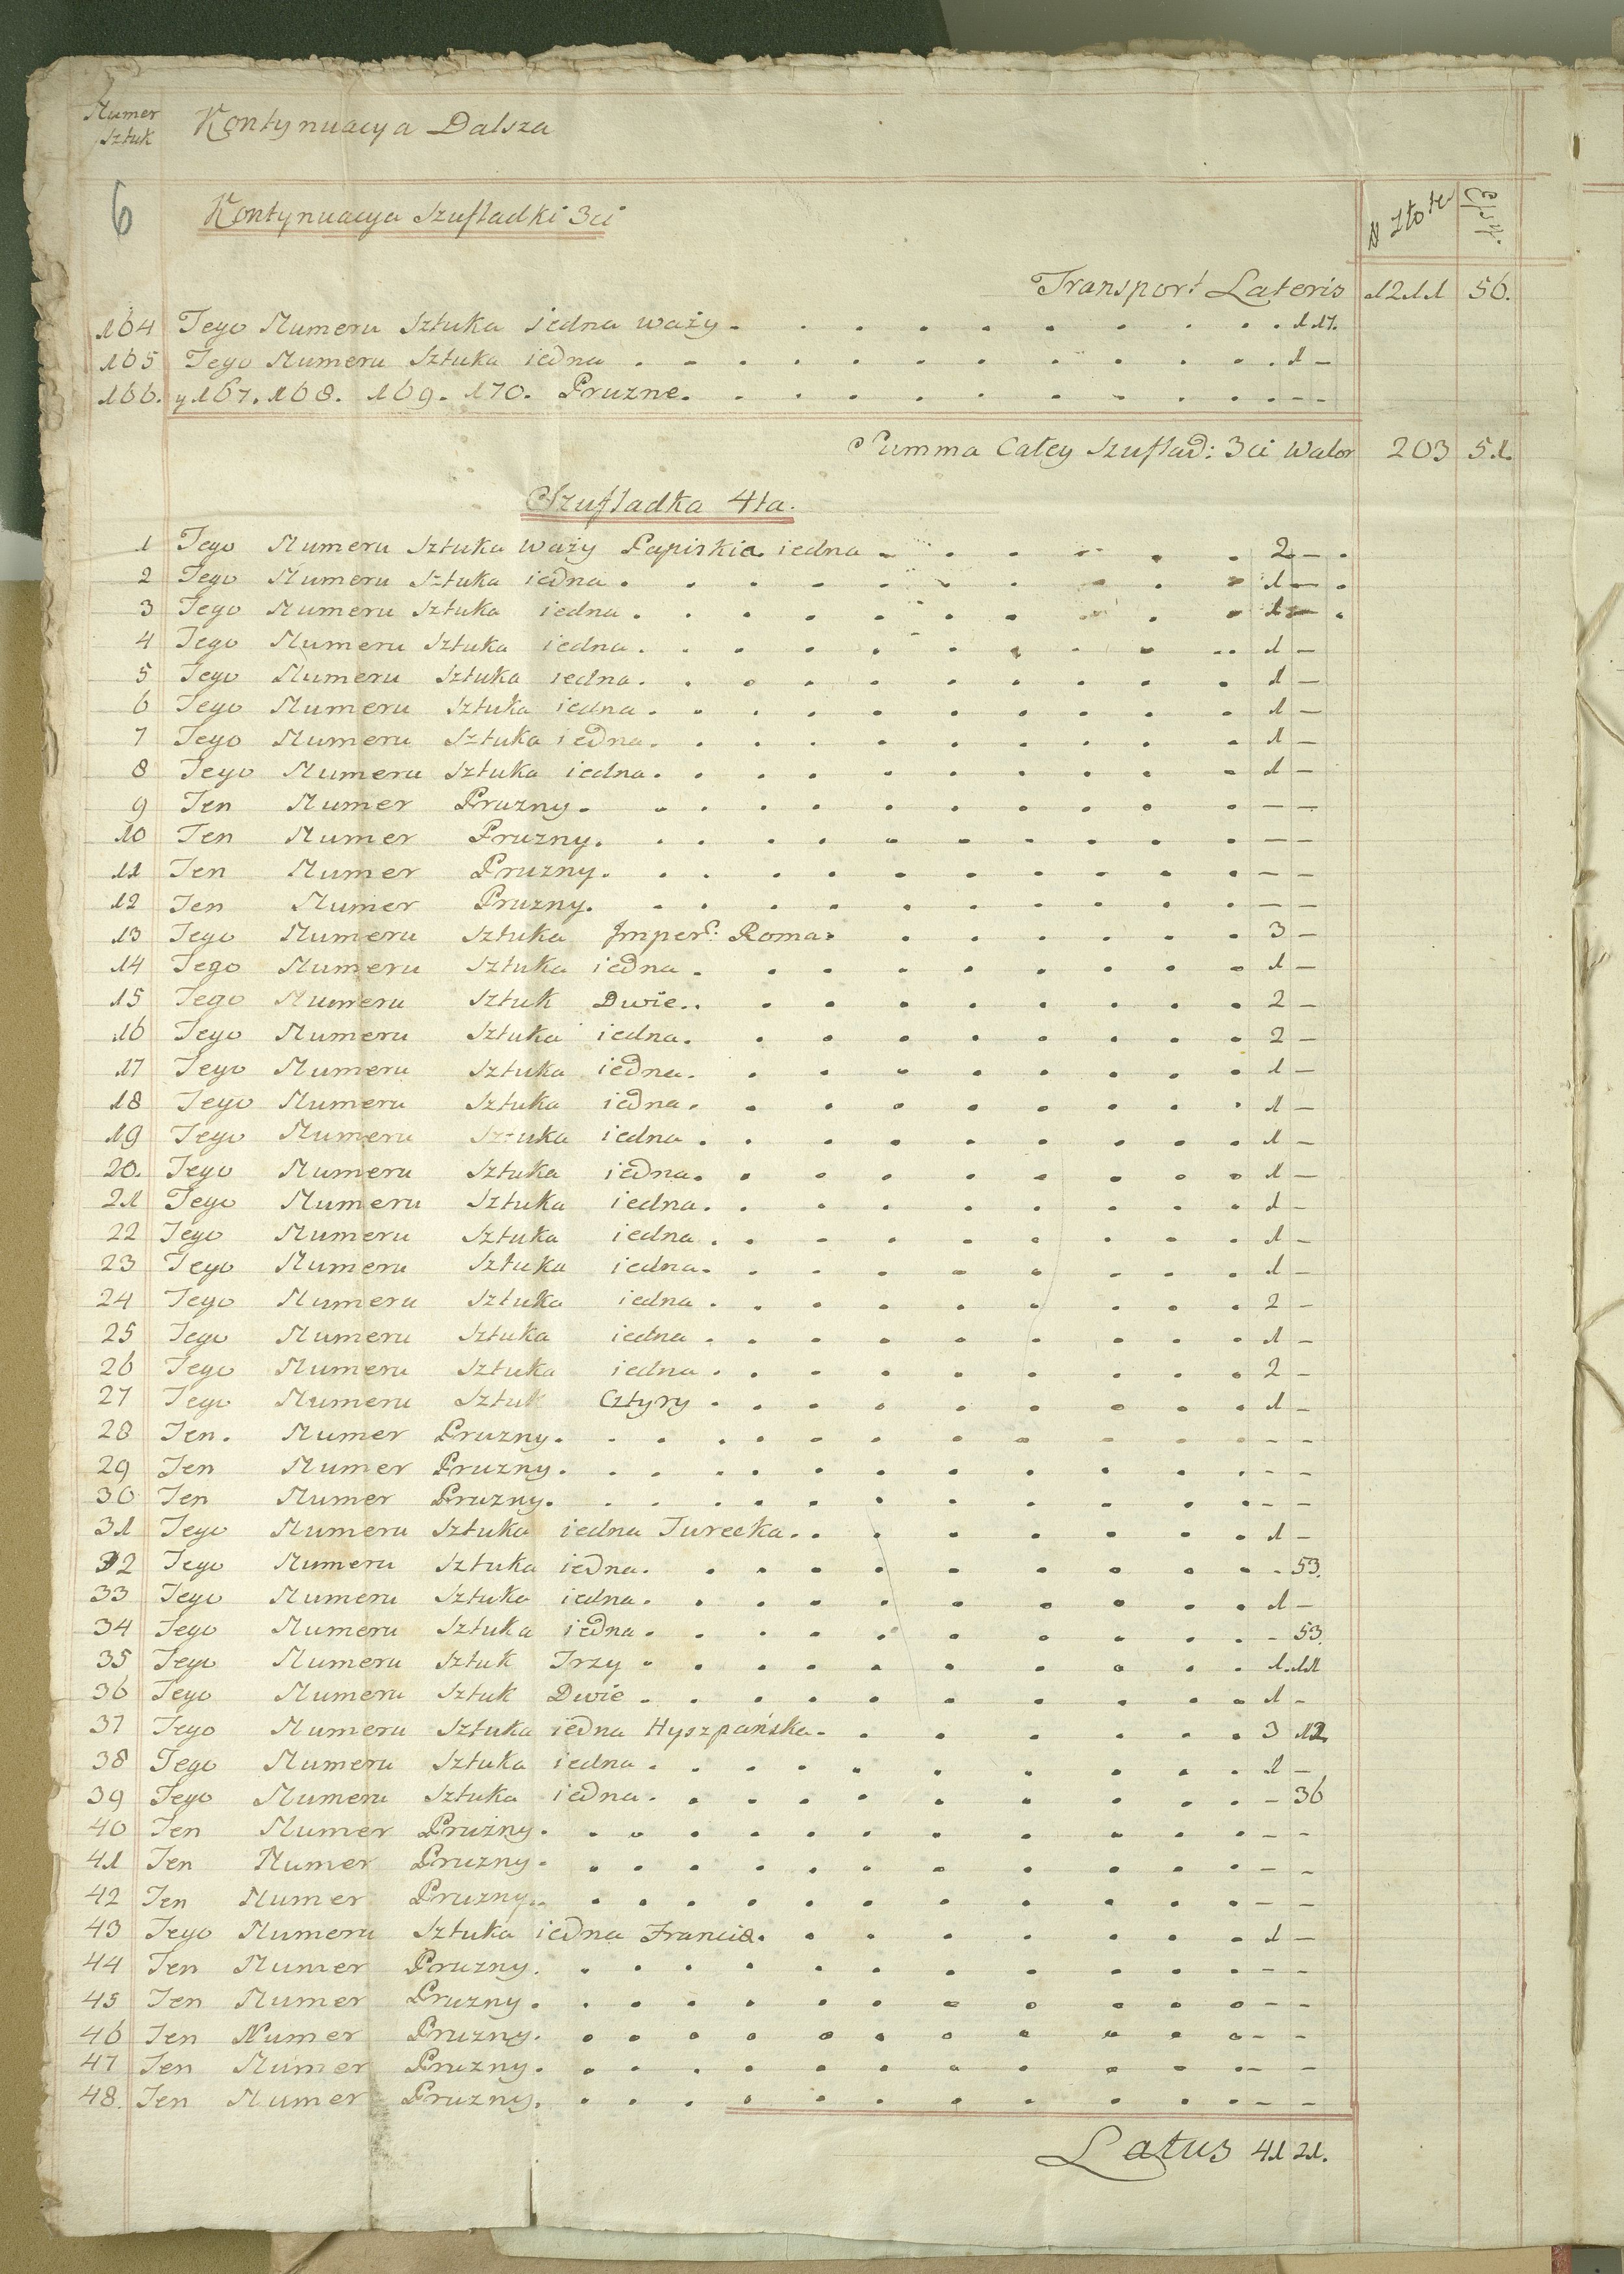 Numer
Sztuk
Kontynuacya Dalsza
6
Kontynuacya Szufladki 3ci
Transport Lateris 1211 56.
164 Tego Numeru Sztuka jedna waży 1 17.
165 Tego Numeru Sztuka iedna 1 —
166. y 167. 168. 169. 170. Pruzne. — —
Summa Całey Szuflad: 3ci Walor 203 51.
Szufladka 4ta.
1 Tego Numeru Sztuka waży Papiskia iedna 2 —
2 Tego Numeru Sztuka iedna 1 —
3 Tego Numeru Sztuka iedna 1 —
4 Tego Numeru Sztuka iedna 1 —
5 Tego Numeru Sztuka iedna 1 —
6 Tego Numeru Sztuka iedna 1 —
7 Tego Numeru Sztuka iedna 1 —
8 Tego Numeru Sztuka iedna 1 —
9 Ten Numer Pruzny — —
10 Ten Numer Pruzny — —
11 Ten Numer Pruzny — —
12 Ten Numer Pruzny — —
13 Tego Numeru Sztuka Imper: Roma 3 —
14 Tego Numeru Sztuka iedna 1 —
15 Tego Numeru Sztuk Dwie 2 —
16 Tego Numeru Sztuka iedna 2 —
17 Tego Numeru Sztuka iedna 1 —
18 Tego Numeru Sztuka iedna 1 —
19 Tego Numeru Sztuka iedna 1 —
20. Tego Numeru Sztuka iedna 1 —
21 Tego Numeru Sztuka iedna 1 —
22 Tego Numeru Sztuka iedna 1 —
23 Tego Numeru Sztuka iedna 1 —
24 Tego Numeru Sztuka iedna 2 —
25 Tego Numeru Sztuka iedna 1 —
26 Tego Numeru Sztuka iedna 2 —
27 Tego Numeru Sztuk Cztyry 1 —
28 Ten. Numer Pruzny — —
29 Ten Numer Pruzny — —
30 Ten Numer Pruzny — —
31 Tego Numeru Sztuka iedna Turecka 1 —
32 Tego Numeru Sztuka iedna — 53.
33 Tego Numeru Sztuka iedna 1 —
34 Tego Numeru Sztuka iedna — 53.
35 Tego Numeru Sztuk Trzy 1. 11
36 Tego Numeru Sztuk Dwie 1 —
37 Tego Numeru Sztuka iedna Hyszpańska 3 12.
38 Tego Numeru Sztuka iedna 1 —
39 Tego Numeru Sztuka iedna — 36
40 Ten Numer Pruzny — —
41 Ten Numer Pruzny — —
42 Ten Numer Pruzny — —
43 Tego Numeru Sztuka iedna Francia 1 —
44 Ten Numer Pruzny — —
45 Ten Numer Pruzny — —
46 Ten Numer Pruzny — —
47 Ten Numer Pruzny — —
48. Ten Numer Pruzny — —
Latus 41 21.